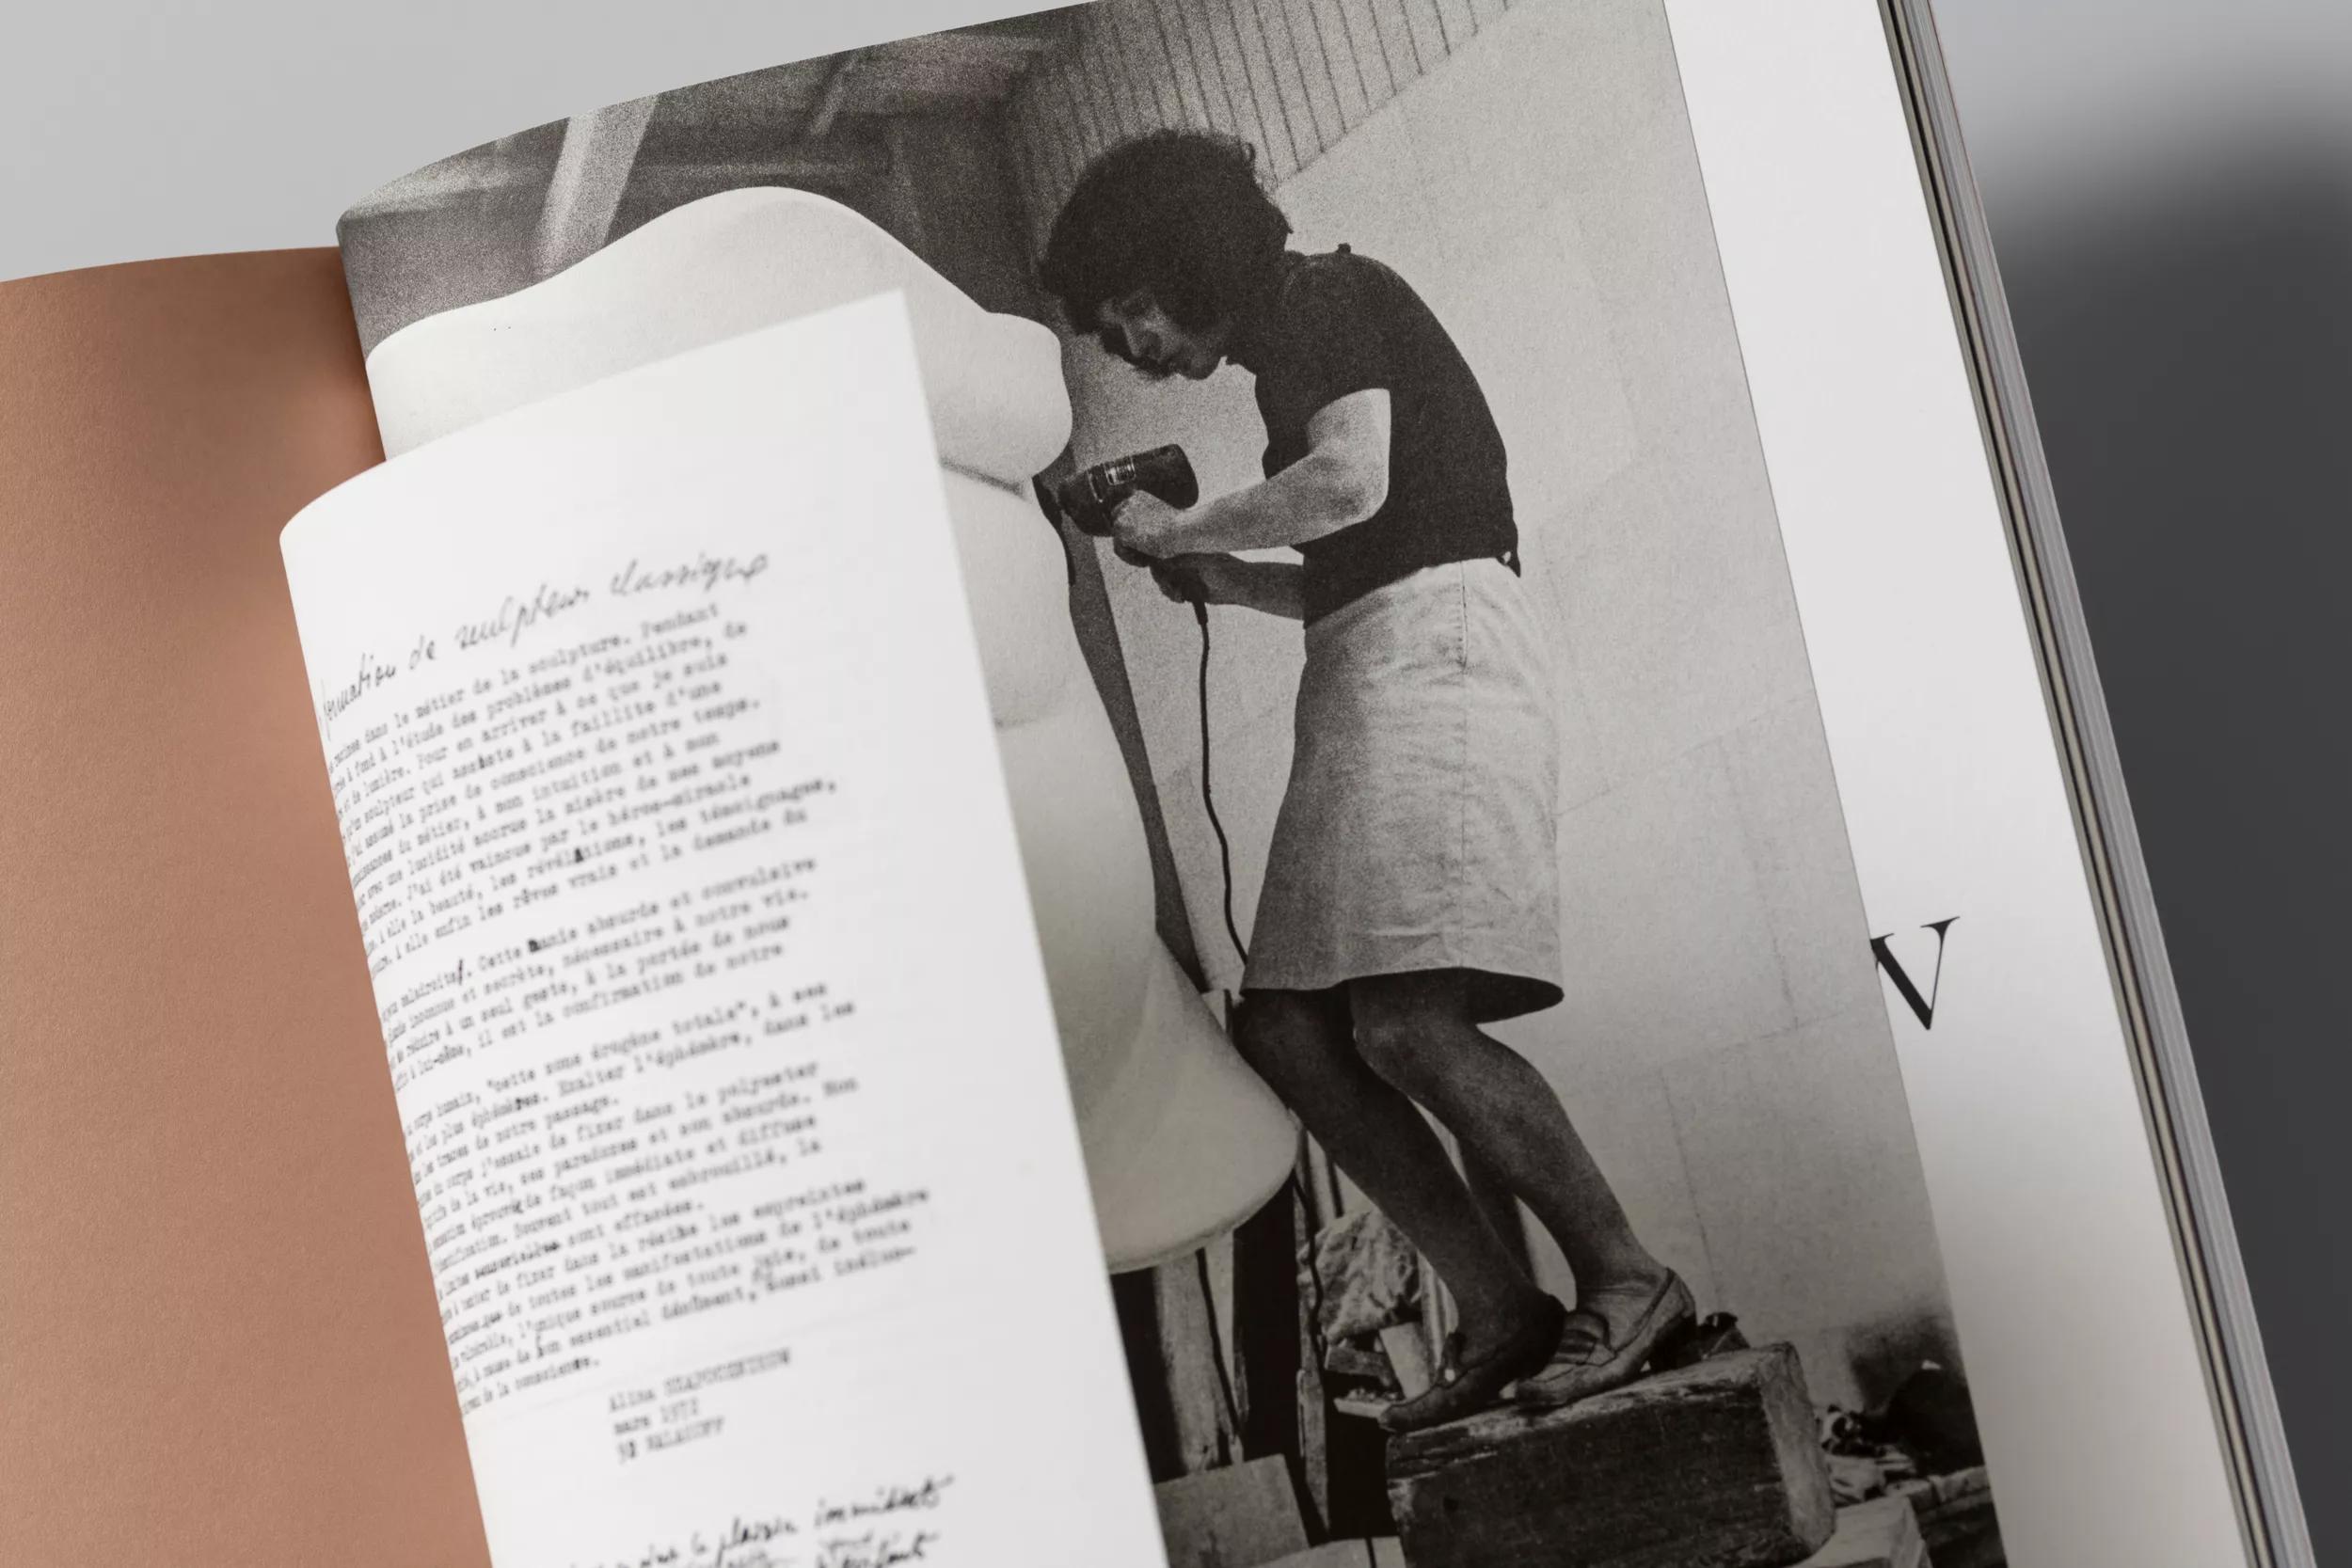 de sculpteur classique
racines dans le métier de la sculpture. Pendant
à fond à l'étude des problèmes d'équilibre, de
et de lumière. Pour en arriver à ce que je suis
qu'un sculpteur qui assiste à la faillite d'une
assumé la prise de conscience de notre temps.
du métier, à mon intuition et à mon
avec une lucidité accrue la misère de mes moyens
J'ai été vaincue par le héros-miracle
à elle la beauté, les révélations, les témoignages,
à elle enfin les rêves vrais et la demande du
maladroits. Cette manie absurde et convulsive
inconnue et secrète, nécessaire à notre vie.
réduire à un seul geste, à la portée de nous
à lui-même, il est la confirmation de notre
corps humain, "cette zone érogène totale", à ses
et les plus éphémères. Exalter l'éphémère, dans les
les traces de notre passage.
du corps j'essaie de fixer dans le polyester
de la vie, ses paradoxes et son absurde. Mon
éprouvée de façon immédiate et diffuse
Souvent tout est embrouillé, la
sont effacées.
de fixer dans la résine les empreintes
que de toutes les manifestations de l'éphémère
l'unique source de toute joie, de toute
à cause de son essentiel dénûment, aussi inéluc-
de la conscience.
Alina SZAPOCZNIKOW
mars 1972
92 MALAKOFF
le plaisir immédiat
V